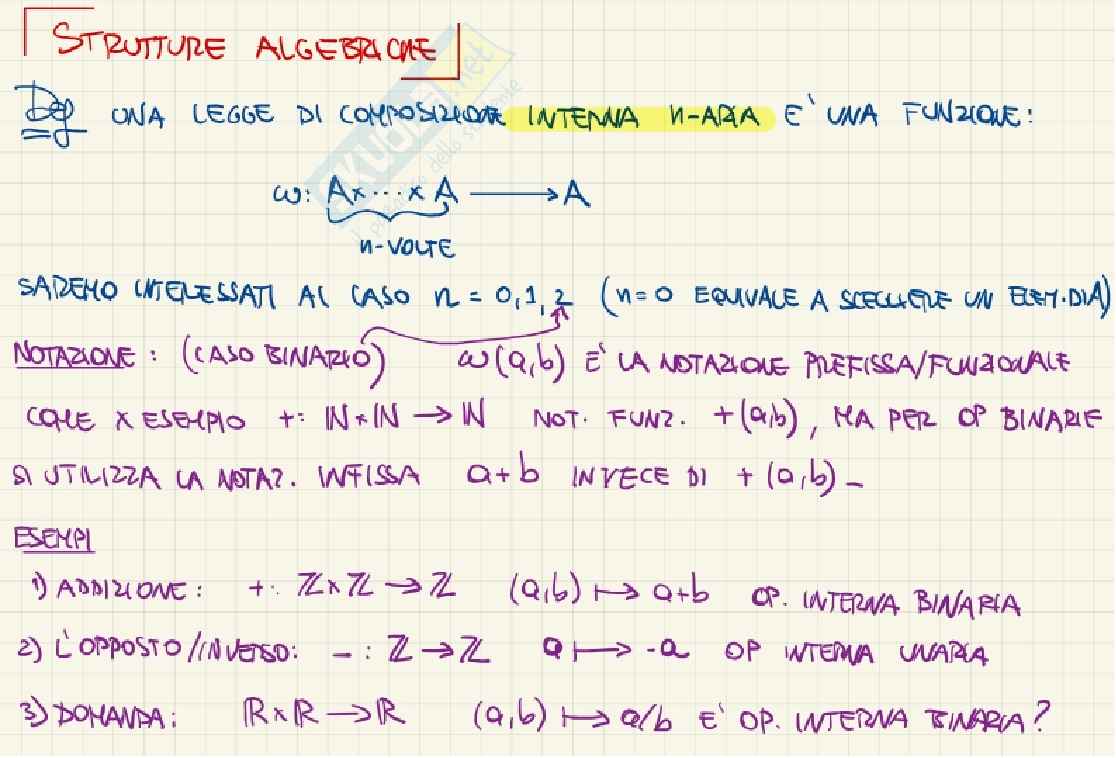 STRUTTURE ALGEBRICHE
Def UNA LEGGE DI COMPOSIZIONE INTERNA n-ARIA E' UNA FUNZIONE:
ω: A×···×A ⟶ A
n-VOLTE
SAREMO INTERESSATI AL CASO n = 0,1,2 (n=0 EQUIVALE A SCEGLIERE UN ELEM. DI A)
NOTAZIONE: (CASO BINARIO) ω(a,b) E' LA NOTAZIONE PREFISSA/FUNZIONALE
COME X ESEMPIO +: ℕ×ℕ → ℕ NOT. FUNZ. +(a,b), MA PER OP BINARIE
SI UTILIZZA LA NOTAZ. INFISSA a+b INVECE DI +(a,b) –
ESEMPI
1) ADDIZIONE: +: ℤ×ℤ → ℤ (a,b) ↦ a+b OP. INTERNA BINARIA
2) L'OPPOSTO/INVERSO: – : ℤ → ℤ a ↦ -a OP INTERNA UNARIA
3) DOMANDA: ℝ×ℝ → ℝ (a,b) ↦ a/b E' OP. INTERNA BINARIA?